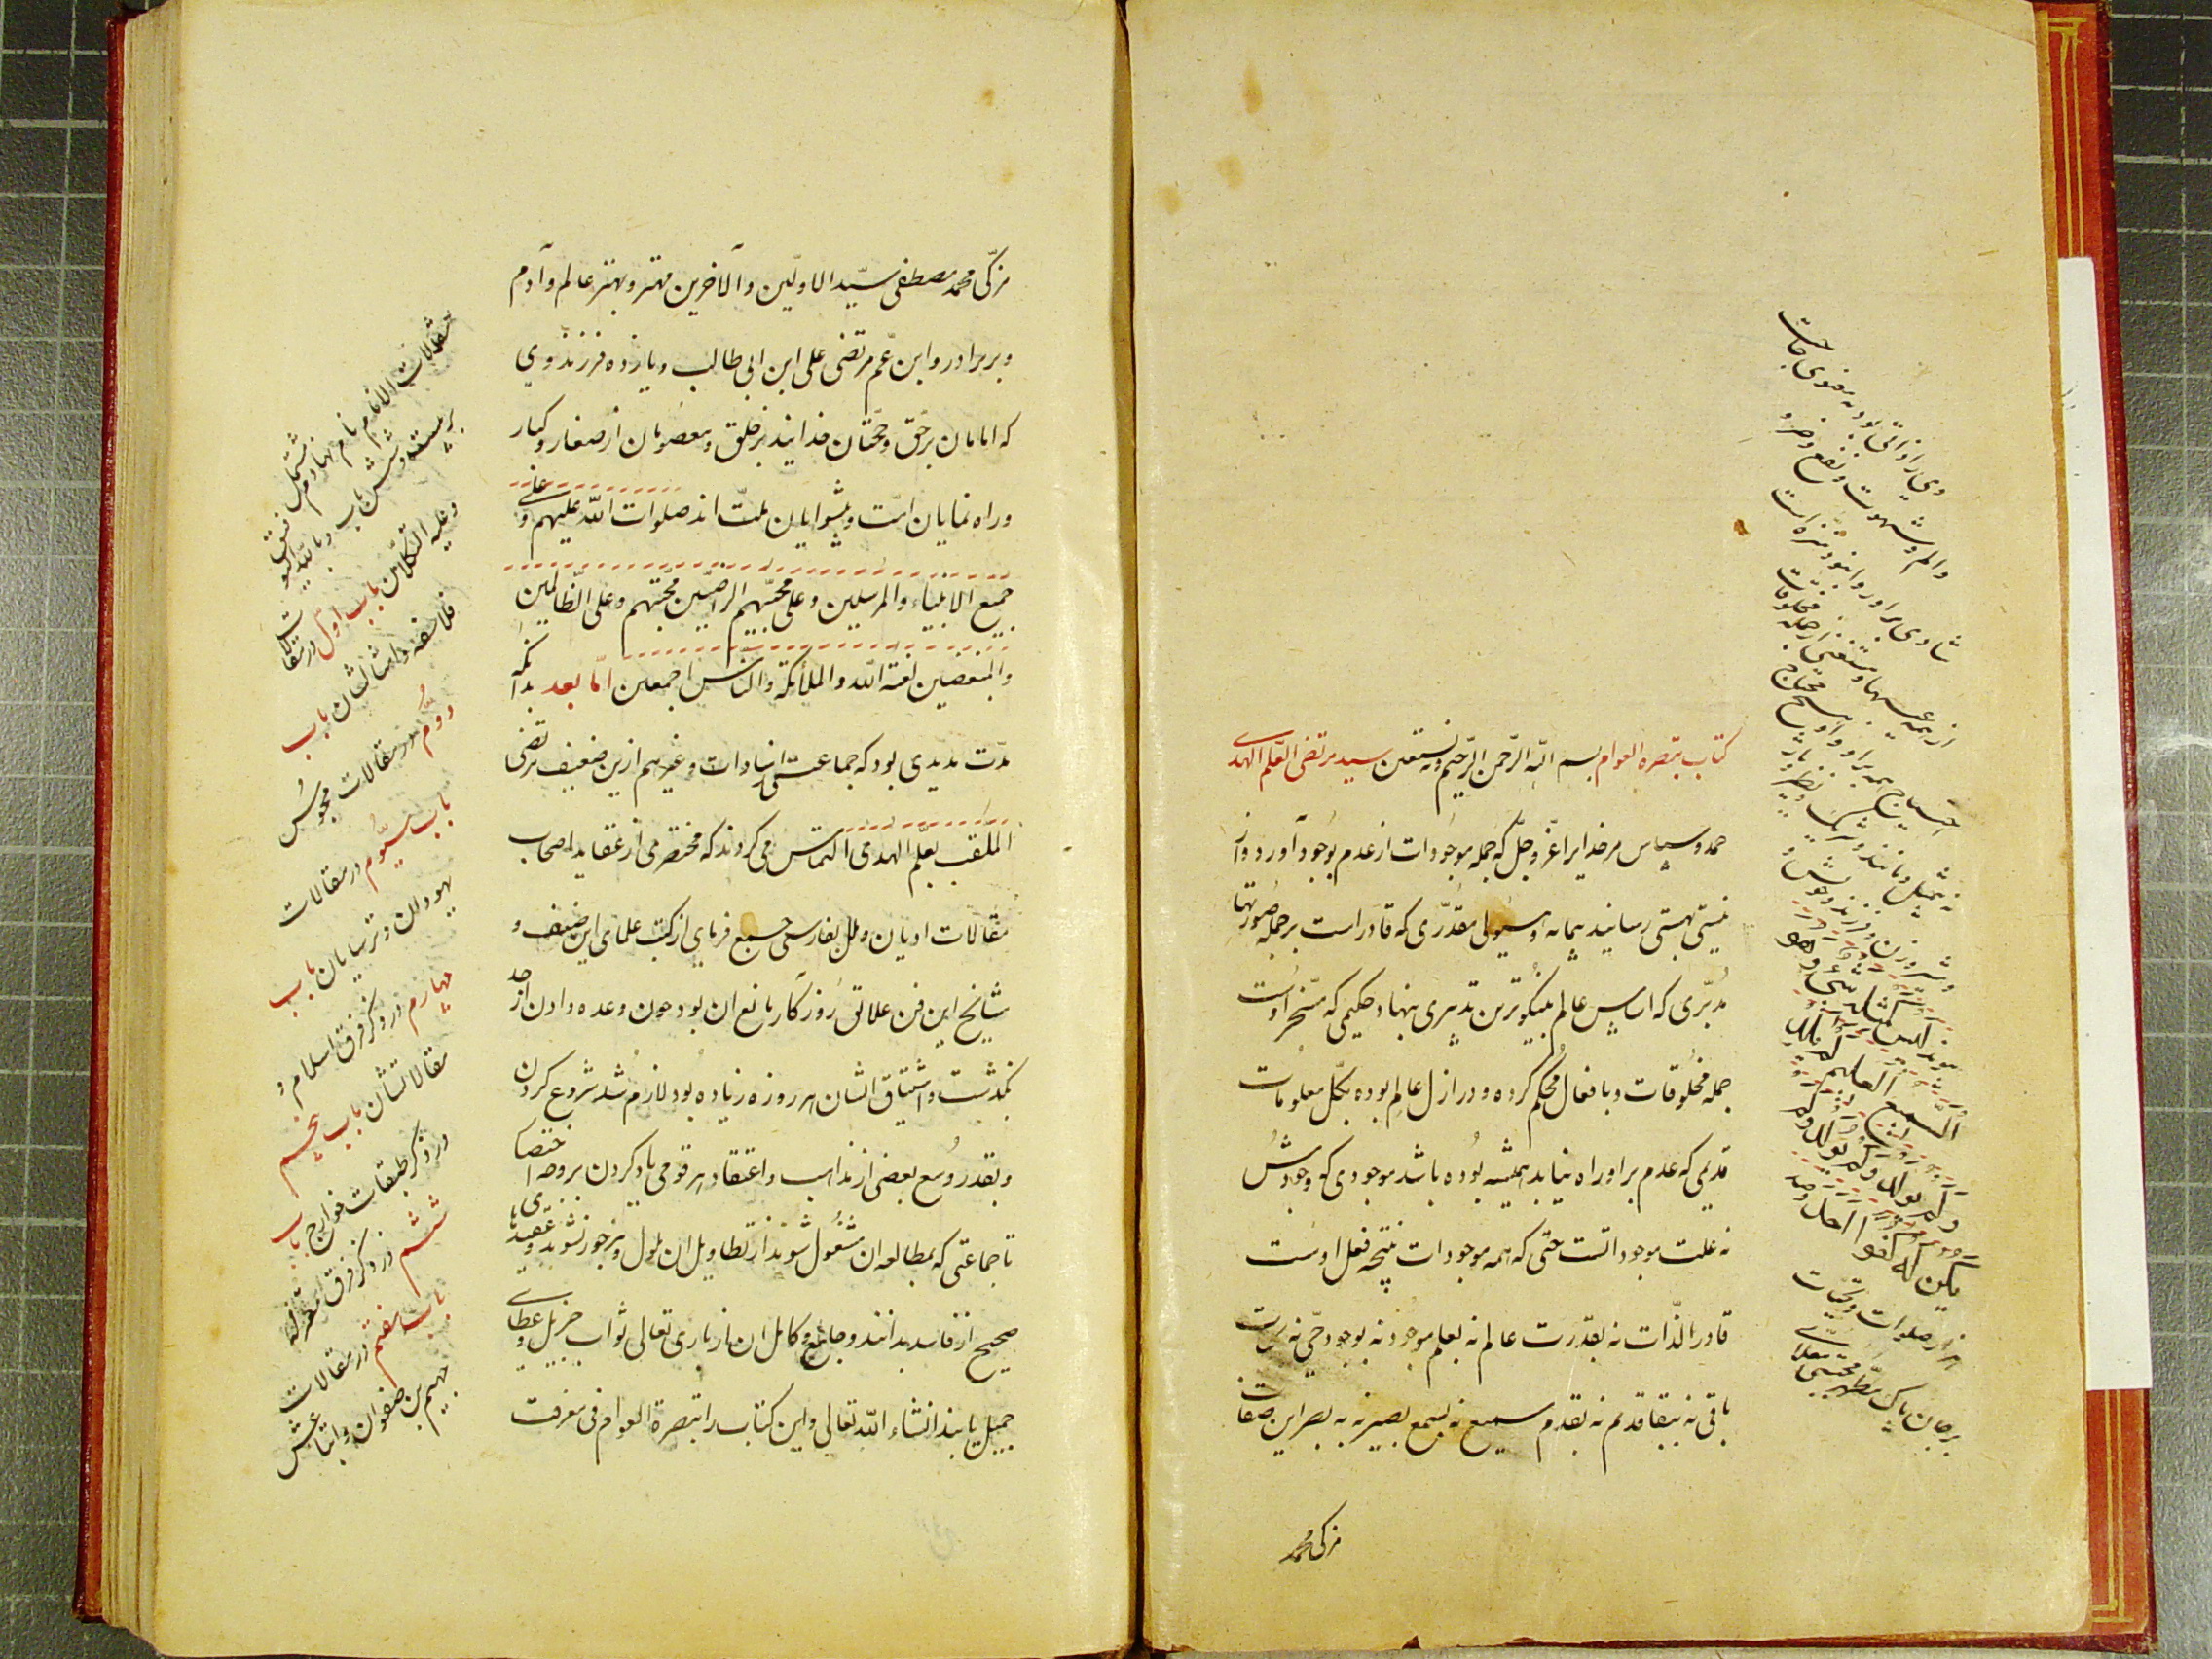 کتاب تبصره العوام بسم الله الرحمن الرحیم و به نستعین سید مرتضی العلم الهدی
حمد و سپاس مر خدایرا عز و جل که جمله موجودات از عدم بوجود آورد و از
نیستی بهستی رسانید بیمانه و هیولی مقدری که قادر است بر جمله صورتها
مدبری که اساس عالم بنیکوترین تدبیری بنهاد حکیمی که مسخر اوست
جمله مخلوقات و با فعال محکم کرده و در ازل عالم بوده بکل معلومات
قدیمی که عدم بر او راه نیابد همیشه بوده باشد موجودی که وجودش
نه علت موجوداتست حتی که همه موجودات نتیجه فعل اوست
قادر بالذات نه بقدرت عالم نه بعلم موجود نه بوجود حی نه بحیوة
باقی نه ببقا قدیم نه بقدم سمیع نه بسمع بصیر نه به بصر این صفات
ویرا ذاتی بود نه معنوی حاجت
و الم و شهوت و نفع و ضر و
شادی بر او روا نبود منزه است
از همه عیبها و مستغنی از جمله مخلوقات
احتیاج همه براو و او بهیچ محتاج
نه مثل و مانند و شریک و نظیر یار
و مشیر و زن و فرزند و خویش و
پیوند لیس کمثله شیء و هو
السمیع العلیم لم یلد
و لم یولد و لم
یکن له کفوا احد و صد
هزار صلوات و تحیات
بر جان پاک مطهر مجتبی معلای
مزکی محمد
مزکی محمد مصطفی سید الاولین و الآخرین مهتر و بهتر عالم و آدم
و بر برادر و ابن عم مرتضی علی ابن ابی طالب و یازده فرزند وی
که امامان بر حق و حجتان خدایند بر خلق و معصومان از صغار و کبار
و راه نمایان امت و پیشوایان ملت اند صلوات الله علیهم و علی
جمیع الانبیاء و المرسلین و علی محبیهم الراضین محبتهم و علی الظالمین
و المبغضین لعنة الله و الملائکة و الناس اجمعین اما بعد بدانکه
مدت مدیدی بود که جماعتی از سادات و غیرهم ازین ضعیف مرتضی
الملقب بعلم الهدی التماس می کردند که مختصر می از عقاید اصحاب
مقالات ادیان و ملل بفارسی جمع فرمای از کتب علمای این صنف و
مشایخ این فن علائق روزگار مانع ان بود چون وعده دادن از حد
بگذشت و اشتیاق ایشان هر روزه زیاده بود لازم شد شروع کردن
و بقدر وسع بعضی از مذاهب و اعتقاد هر قومی یاد کردن بر وجه اختصار
تا جماعتی که بمطالعه ان مشغول شوند از تطاویل ان ملول و منزجر نشوند و عقیده
صحیح از فاسد بدانند و جامع و کامل ان از باری تعالی ثواب جزیل و عطای
جمیل یابند انشاء الله تعالی و این کتاب را تبصرة العوام فی معرفت
مقالات الانام نام نهادم مشتمل
بر بیست و شش باب و بالله التوفیق
و علیه التکلان باب اول در مقالات
فلاسفه و امثالشان باب
دوم در مقالات مجوس
باب سیوم در مقالات
یهودان و ترسایان باب
چهارم در ذکر فرق اسلام و
مقالاتشان باب پنجم
در ذکر طبقات خوارج باب
ششم در ذکر فرق معتزله
باب هفتم در مقالات
جهیم بن صفوان و اتباعش